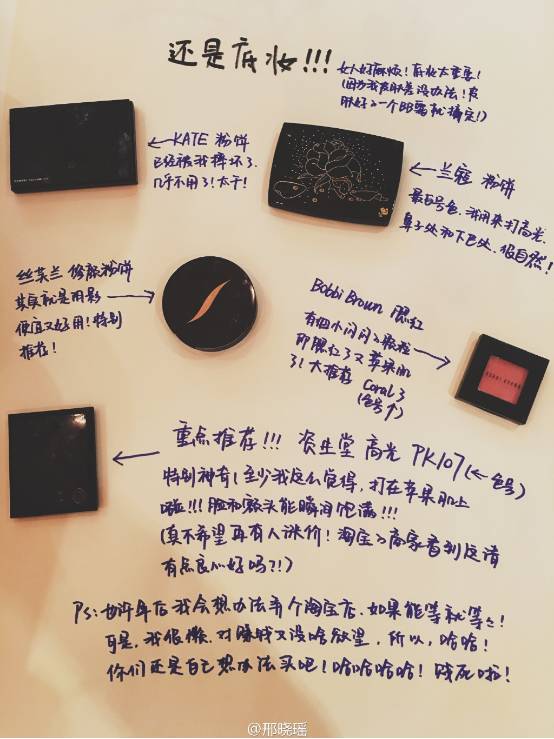 还是底妆!!!
女人好麻烦！底妆太重要！
(因为我皮肤差没办法！皮
肤好的一个BB霜就搞定！)
←KATE 粉饼
已经被我摔坏了.
几乎不用了！太干！
←兰蔻 粉饼
最白号色，我用来打高光.
鼻子处和下巴处.很自然！
丝芙兰 修颜粉饼
其实就是阴影
便宜又好用！特别
推荐！
Bobbi Brown 腮红
有细小闪闪的颗粒
即腮红了又苹果肌
了！大推荐 Coral 3
(色号↑)
BOBBI BROWN
重点推荐!!! 资生堂 高光 PK107(←色号)
特别神奇！至少我这么觉得，打在苹果肌上
啦!!! 脸和额头能瞬间饱满!!!
(真不希望再有人涨价！淘宝的商家看到这请
有点良心好吗?!)
Ps: 也许年后我会想办法弄个淘宝店.如果能等就等等！
可是，我很懒.对赚钱又没啥欲望，所以，哈哈！
你们还是自己想办法买吧！哈哈哈哈！贱死啦！
@邢晓瑶